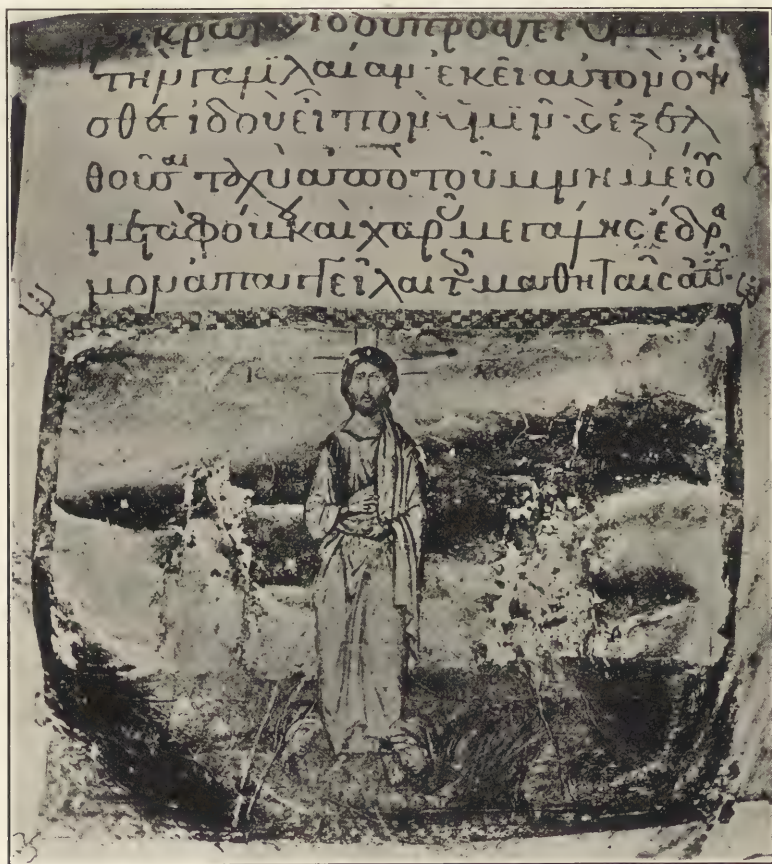 κρῶν ἰδοὺ προάγει ὑμ
τὴν γαλιλαίαν· ἐκεῖ αὐτὸν ὄψε
σθε ἰδοὺ εἶπον ὑμῖν· καὶ ἐξελ
θοῦσαι ταχὺ ἀπὸ τοῦ μνημείου
μετὰ φόβου καὶ χαρᾶς μεγάλης ἔδρα
μον ἀπαγγεῖλαι τοῖς μαθηταῖς αὐτοῦ·
ΙC ΧC